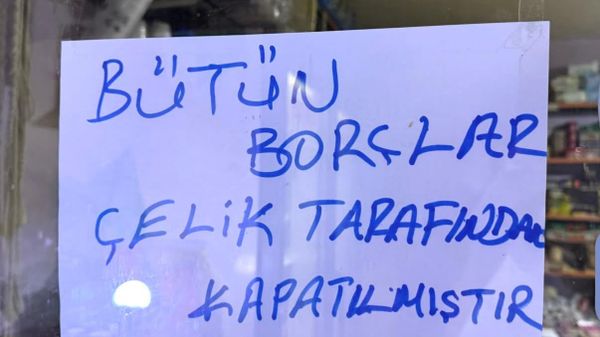 BÜTÜN
BORÇLAR
ÇELİK TARAFINDAN
KAPATILMIŞTIR